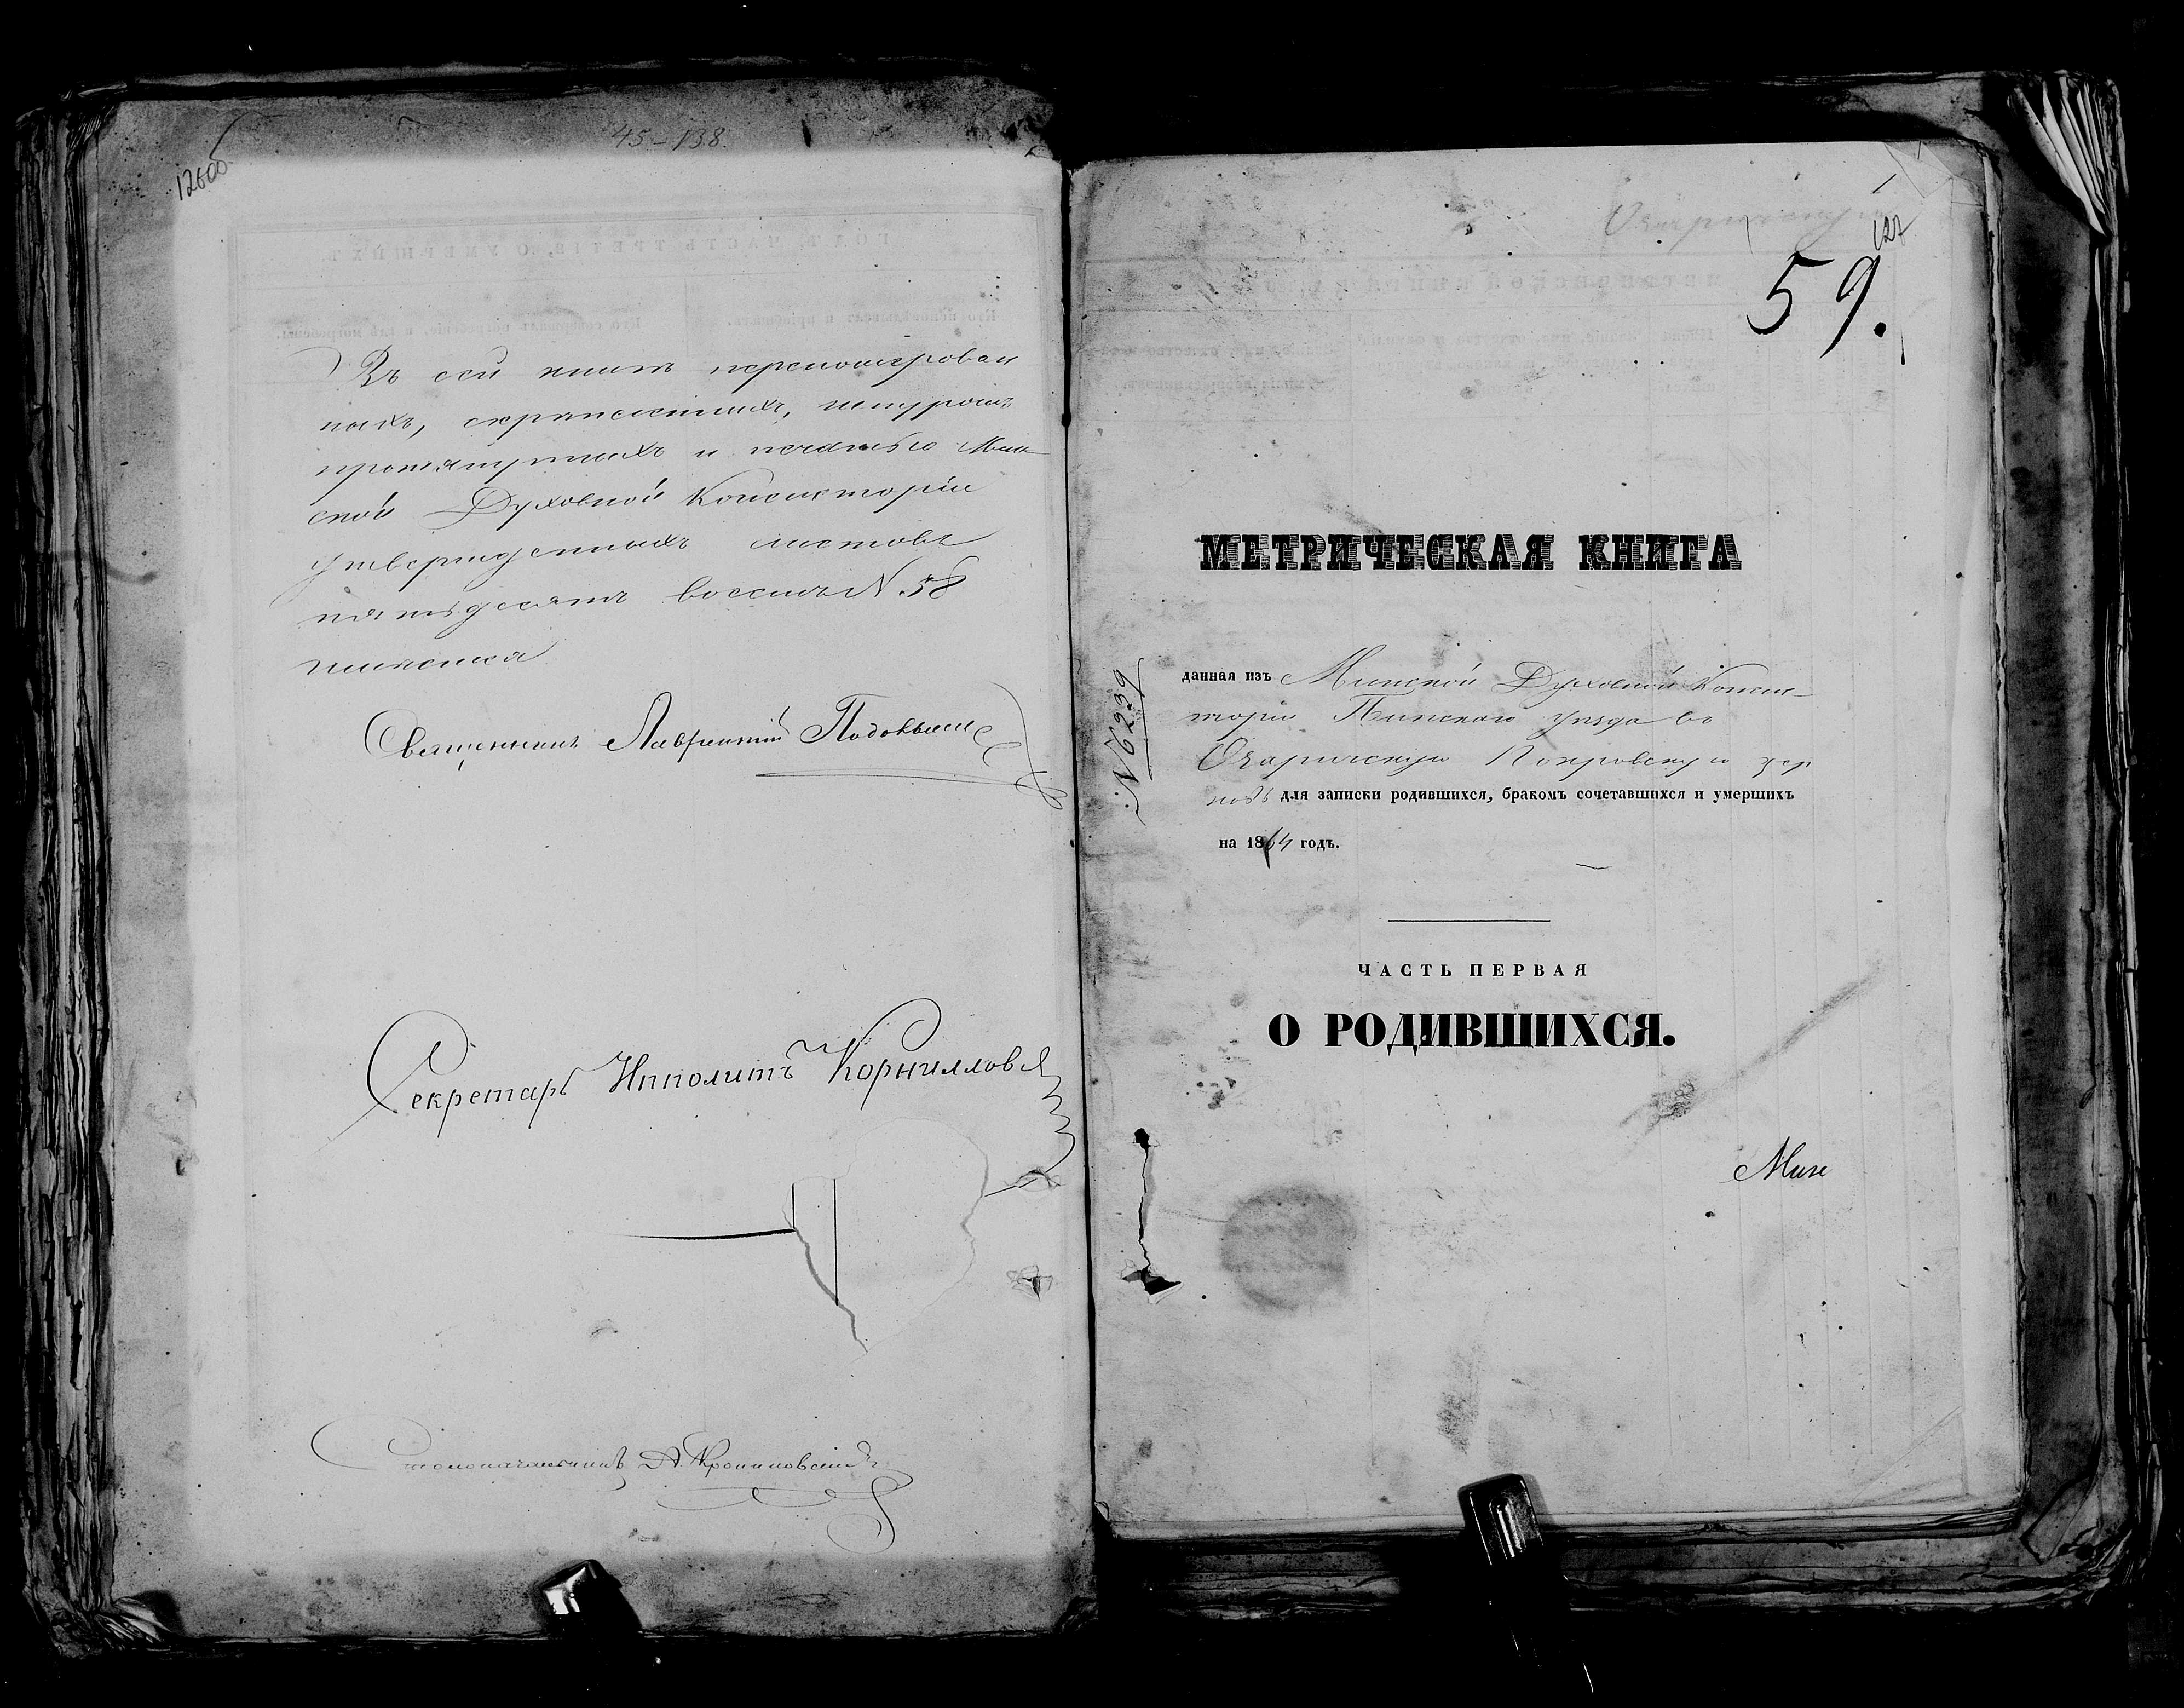 45-138.
Въ сей книгѣ перенумерован
ныхъ, скрѣпленныхъ,
протянутыхъ и печатью Мин
ской Духовной Консисторіи
утвержденныхъ листовъ
пятьдесятъ восемь N 58
Священникъ Лаврентій
Секретарь Ипполитъ Корниловъ
Столоначальникъ А.
127
59.
МЕТРИЧЕСКАЯ КНИГА
данная изъ Минской Духовной Консис-
торіи Пинскаго уѣзда въ
Озаричскую Покровскую цер
ковь для записки родившихся, бракомъ сочетавшихся и умершихъ
на 1864 годъ.
N 6239
ЧАСТЬ ПЕРВАЯ
О РОДИВШИХСЯ.